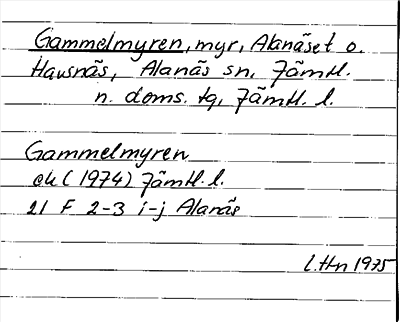 Gammelmyren, myr, Alanäset o.
Havsnäs, Alanäs sn, Jämtl.
n. doms. tg, Jämtl. l.
Gammelmyren
ek (1974) Jämtl. l.
21 F 2-3 i-j Alanäs
L. Hn 1975